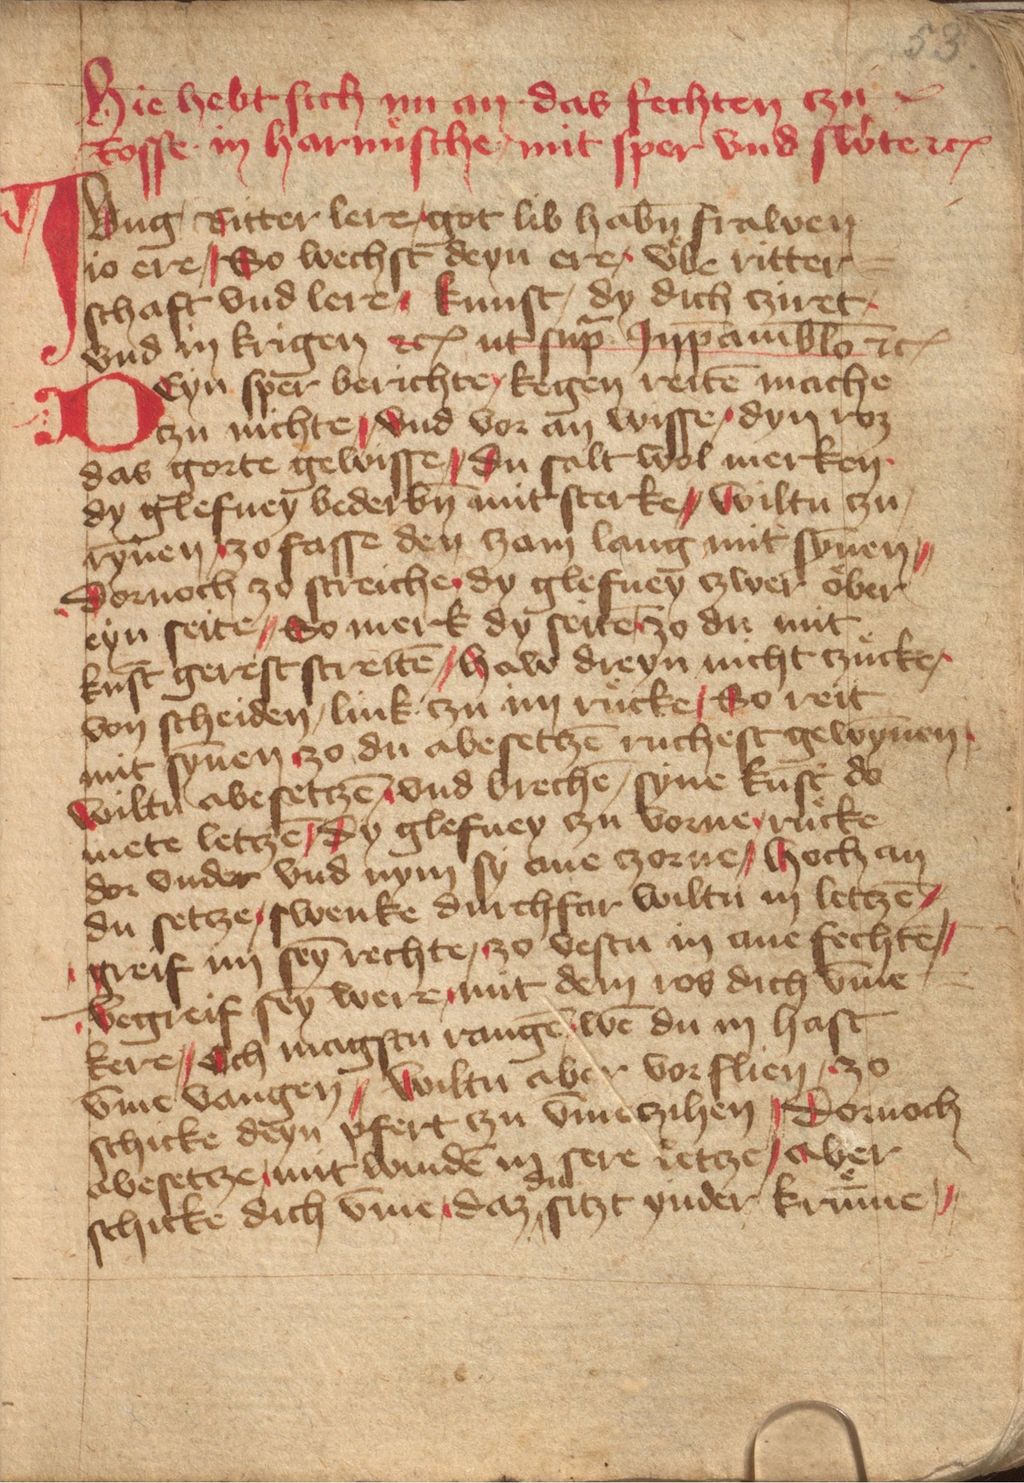 53.
Hie hebt sich nu an das fechten czu
Rosse in harnüsche mit sper vnd swte ꝛcꝭ
Jung Ritter lere / got lib habñ frawen
io ere / So wechst deyn ere / vbe ritter=
schaft vnd lere / kunst / dy dich cziret
vnd in krigen ꝛcꝭ ut sup̄
Deyn sper berichte / kegen reitē mache
czu nichte / vnd vor an wisse / dyn roz
das gorte gewisse // du salt wol merken
dy glefney bederbñ mit sterke // wiltu czu
ryñen / zo fasse den zam lang mit syñen //
Dornoch zo streiche / dy glefney czwer öber
eyn seite // So merk dy seitē / zo du mit
kūst gerest streitē // haw dreyn nicht czücke
von scheiden / link czu im rücke / So reit
mit syñen / zo du abesetczē ruchest gewyñen
wiltu abesetczē / vnd brechē / syne kūst do
mete letczē / Dy glefney czu vorne / rücke
dor vnder vnd nym sy ane zorne // hoch an
du setcze / swenke durchfar wiltu in letczē //
greif im seȳ rechte / zo vestu in ane fechtē //
Begreif seȳ were / mit dem ros dich vm̄e
kere // Och magstu rangē / wē du in hast
vm̄e vangen // wiltu aber vorflien / zo
schicke deyn pfert czu vm̄eczihen / Dornoch
abesetze / mit windē in sere letcze / aber
schicke dich vm̄e / daz du sitzt ynder krüm̄e //